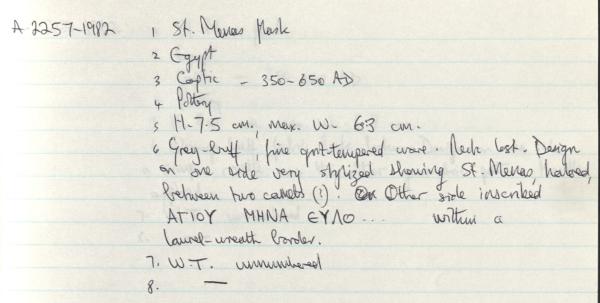 A-2257-1982 1 St. Menas flask
2 Egypt
3 Coptic - 350-650 AD
4 Pottery
5 H- 7.5 cm., max. W- 6.3 cm.
6 Grey-buff, fine grit-tempered ware. Neck lost. Design
on one side very stylized showing St. Menas, haloed,
between two camels (?). Other side inscribed
ΑΓΙΟΥ ΜΗΝΑ ЄΥΛΟ... within a
laurel-wreath border.
7. W.T. unnumbered
8. —